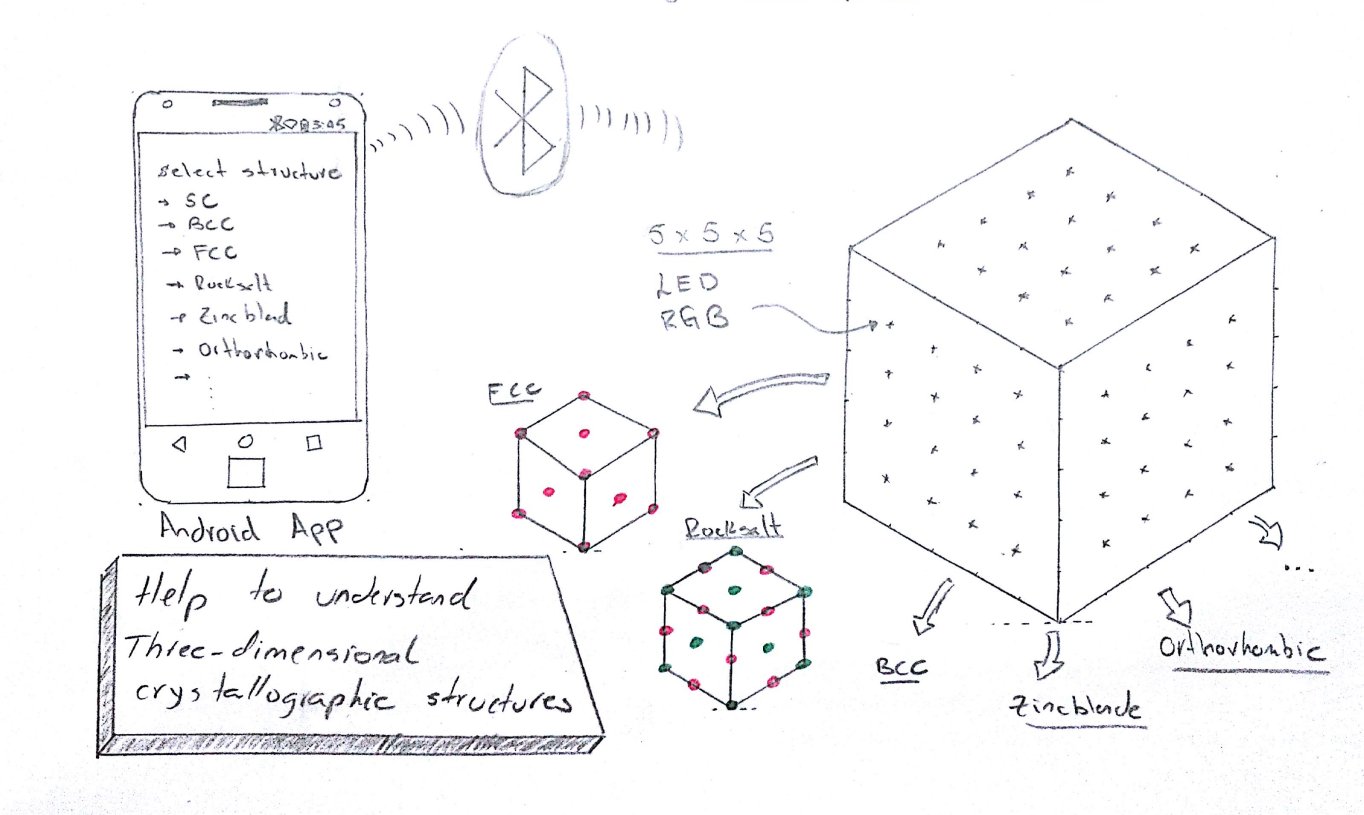 3:45
Select structure
→ SC
→ BCC
→ FCC
→ Rocksalt
→ Zincblend
→ Orthorhombic
→
Android App
5 x 5 x 5
LED
RGB
FCC
Rocksalt
BCC
Zincblende
Orthorhombic
...
Help to understand
Three-dimensional
crystallographic structures